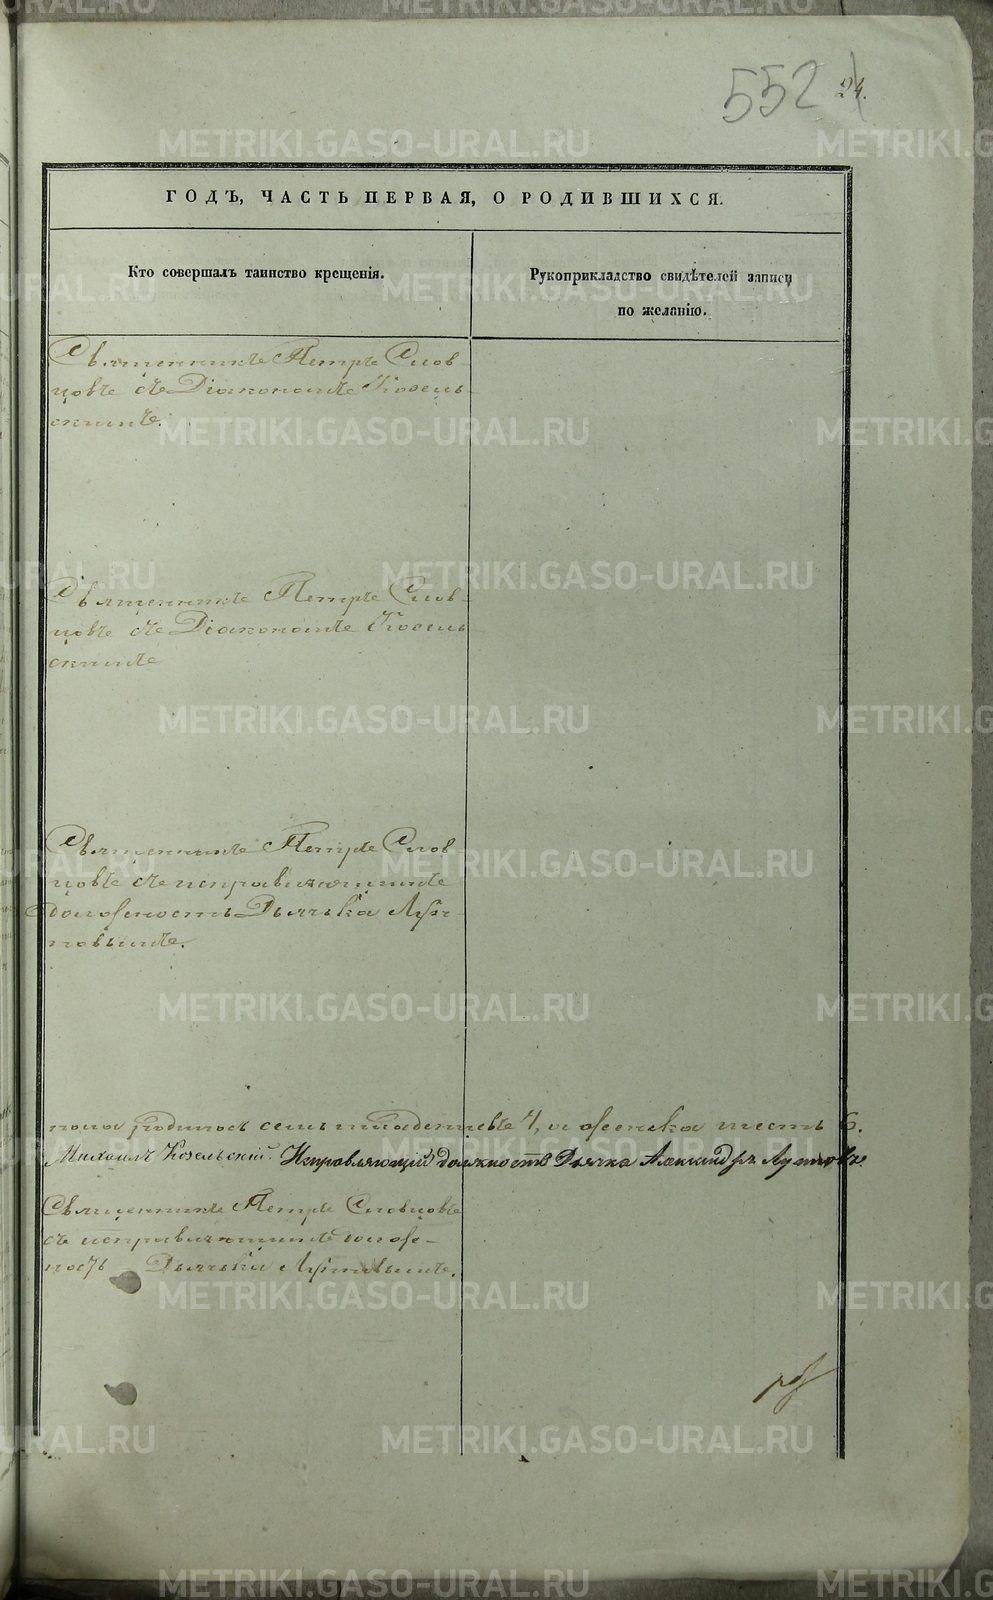 552 24.
ГОДЪ, ЧАСТЬ ПЕРВАЯ, О РОДИВШИХСЯ.
Кто совершалъ таинство крещенія.
Рукоприкладство свидѣтелей записи
по желанію.
Священникъ Петръ Слов-
цовъ съ Діакономъ Козель-
скимъ.
Священникъ Петръ Слов-
цовъ съ Діакономъ Козель-
скимъ
Священникъ Петръ Слов-
цовъ съ исправляющимъ
должность Дьячка
пола родилось семь младенцевъ 7, и женска шесть 6.
Михаилъ Козельскій. Исправляющій должность Дьячка Александръ
Священникъ Петръ Словцовъ
съ исправляющимъ долж-
ность Дьячка
METRIKI.GASO-URAL.RU